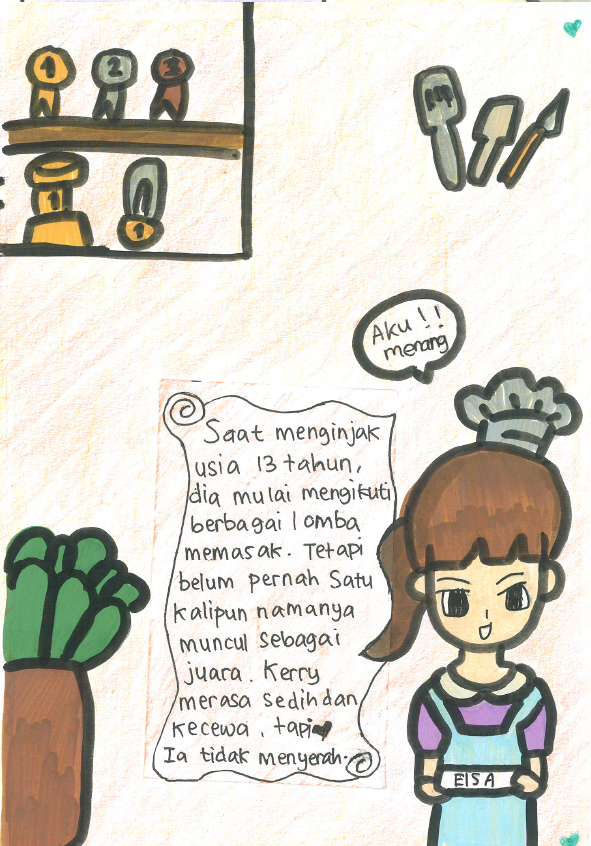 1 2 3
1 1
Aku!!
menang
Saat menginjak
usia 13 tahun,
dia mulai mengikuti
berbagai lomba
memasak. Tetapi
belum pernah satu
kalipun namanya
muncul sebagai
juara. Kerry
merasa sedih dan
kecewa, tapi
Ia tidak menyerah.
ElSA